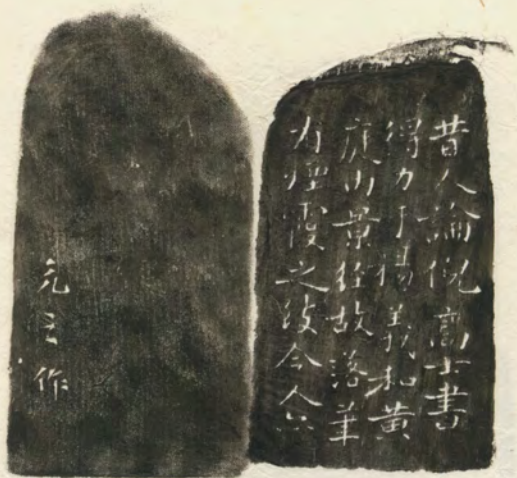 昔人論倪高士書
得力于楊義和黃
庭內景經故落筆
有煙霞之致今人
作